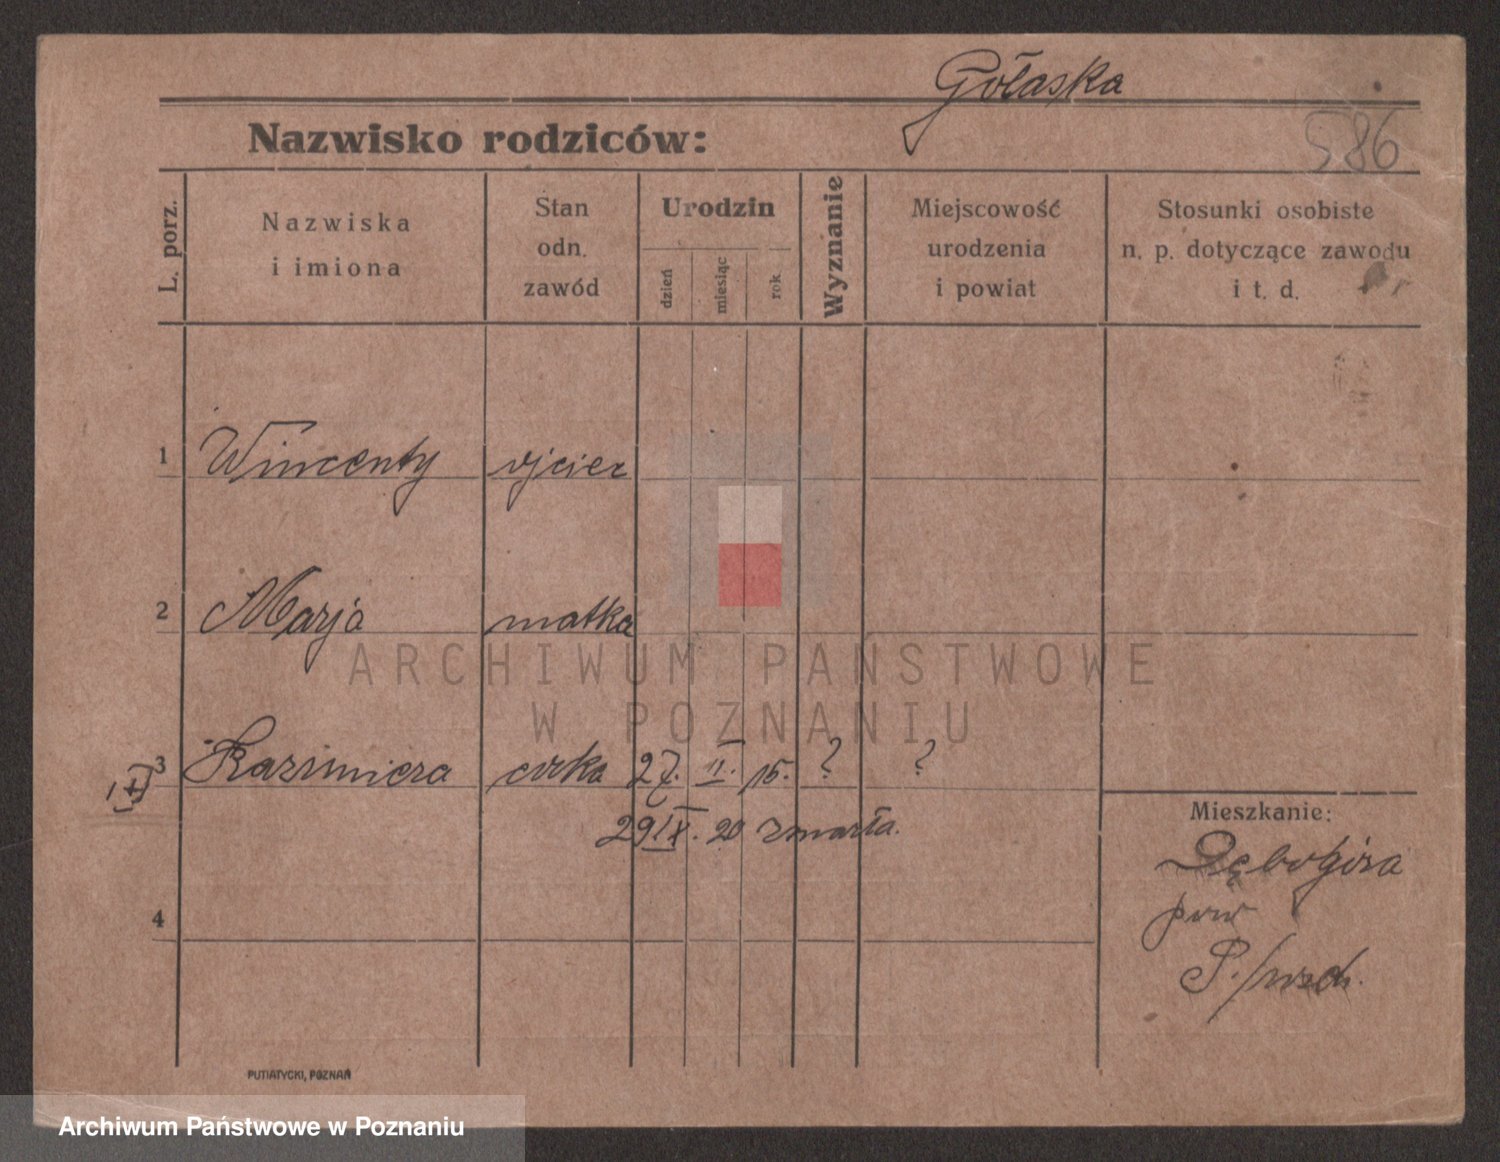 Gółaska
Nazwisko rodziców:
586
L. porz.
Nazwiska
i imiona
Stan
odn.
zawód
Urodzin
dzień
miesiąc
rok.
Wyznanie
Miejscowość
urodzenia
i powiat
Stosunki osobiste
n. p. dotyczące zawodu
i t. d.
1 Wincenty ojciec
2 Marja matka
ARCHIWUM PAŃSTWOWE
W POZNANIU
3 Kazimiera córka 27. II. 15. ? ?
29 IX. 20 zmarła.
4
Mieszkanie:
Dębogóra
pow
PUTIATYCKI, POZNAŃ
Archiwum Państwowe w Poznaniu